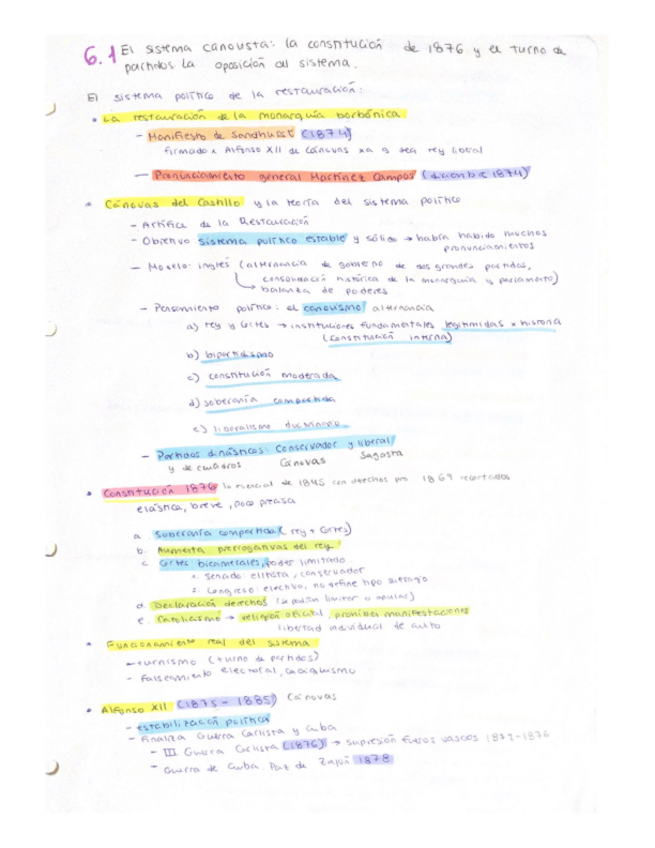 6.1 El sistema canovista: la constitución de 1876 y el turno de
partidos. La oposición al sistema.
El sistema político de la restauración:
• La restauración de la monarquía borbónica
- Manifiesto de Sandhurst (1874)
firmado x Alfonso XII de Cánovas xa q sea rey liberal
- Pronunciamiento general Martínez Campos (diciembre 1874)
• Cánovas del Castillo y la teoría del sistema político
- Artífice de la Restauración
- Objetivo sistema político estable y sólido → había habido muchos
pronunciamientos
- Modelo: inglés (alternancia de gobierno de dos grandes partidos,
consolidación histórica de la monarquía y parlamento)
↳ balanza de poderes
- Pensamiento político: el canovismo alternancia
a) rey y Cortes → instituciones fundamentales legitimidas x historia
(constitución interna)
b) bipartidismo
c) constitución moderada
d) soberanía compartida
e) liberalismo doctrinario
- Partidos dinásticos: Conservador y liberal
y de cuadros Cánovas Sagasta
• Constitución 1876 lo esencial de 1845 con derechos pro 1869 recortados
elástica, breve, poco precisa
a. Soberanía compartida (rey + Cortes)
b. Aumenta prerrogativas del rey
c. Cortes bicamerales, poder limitado
1. Senado: elitista, conservador
2. Congreso: electivo, no define tipo sufragio
d. Declaración derechos (se podían limitar o anular)
e. Catolicismo → religión oficial, prohíben manifestaciones
libertad individual de culto
• Funcionamiento real del sistema
- turnismo (turno de partidos)
- Falseamiento electoral, caciquismo
• Alfonso XII (1875 - 1885) Cánovas
- estabilización política
- Finaliza Guerra Carlista y Cuba
- III Guerra Carlista (1876) → supresión fueros vascos 1872-1876
- Guerra de Cuba. Paz de Zanjón 1878